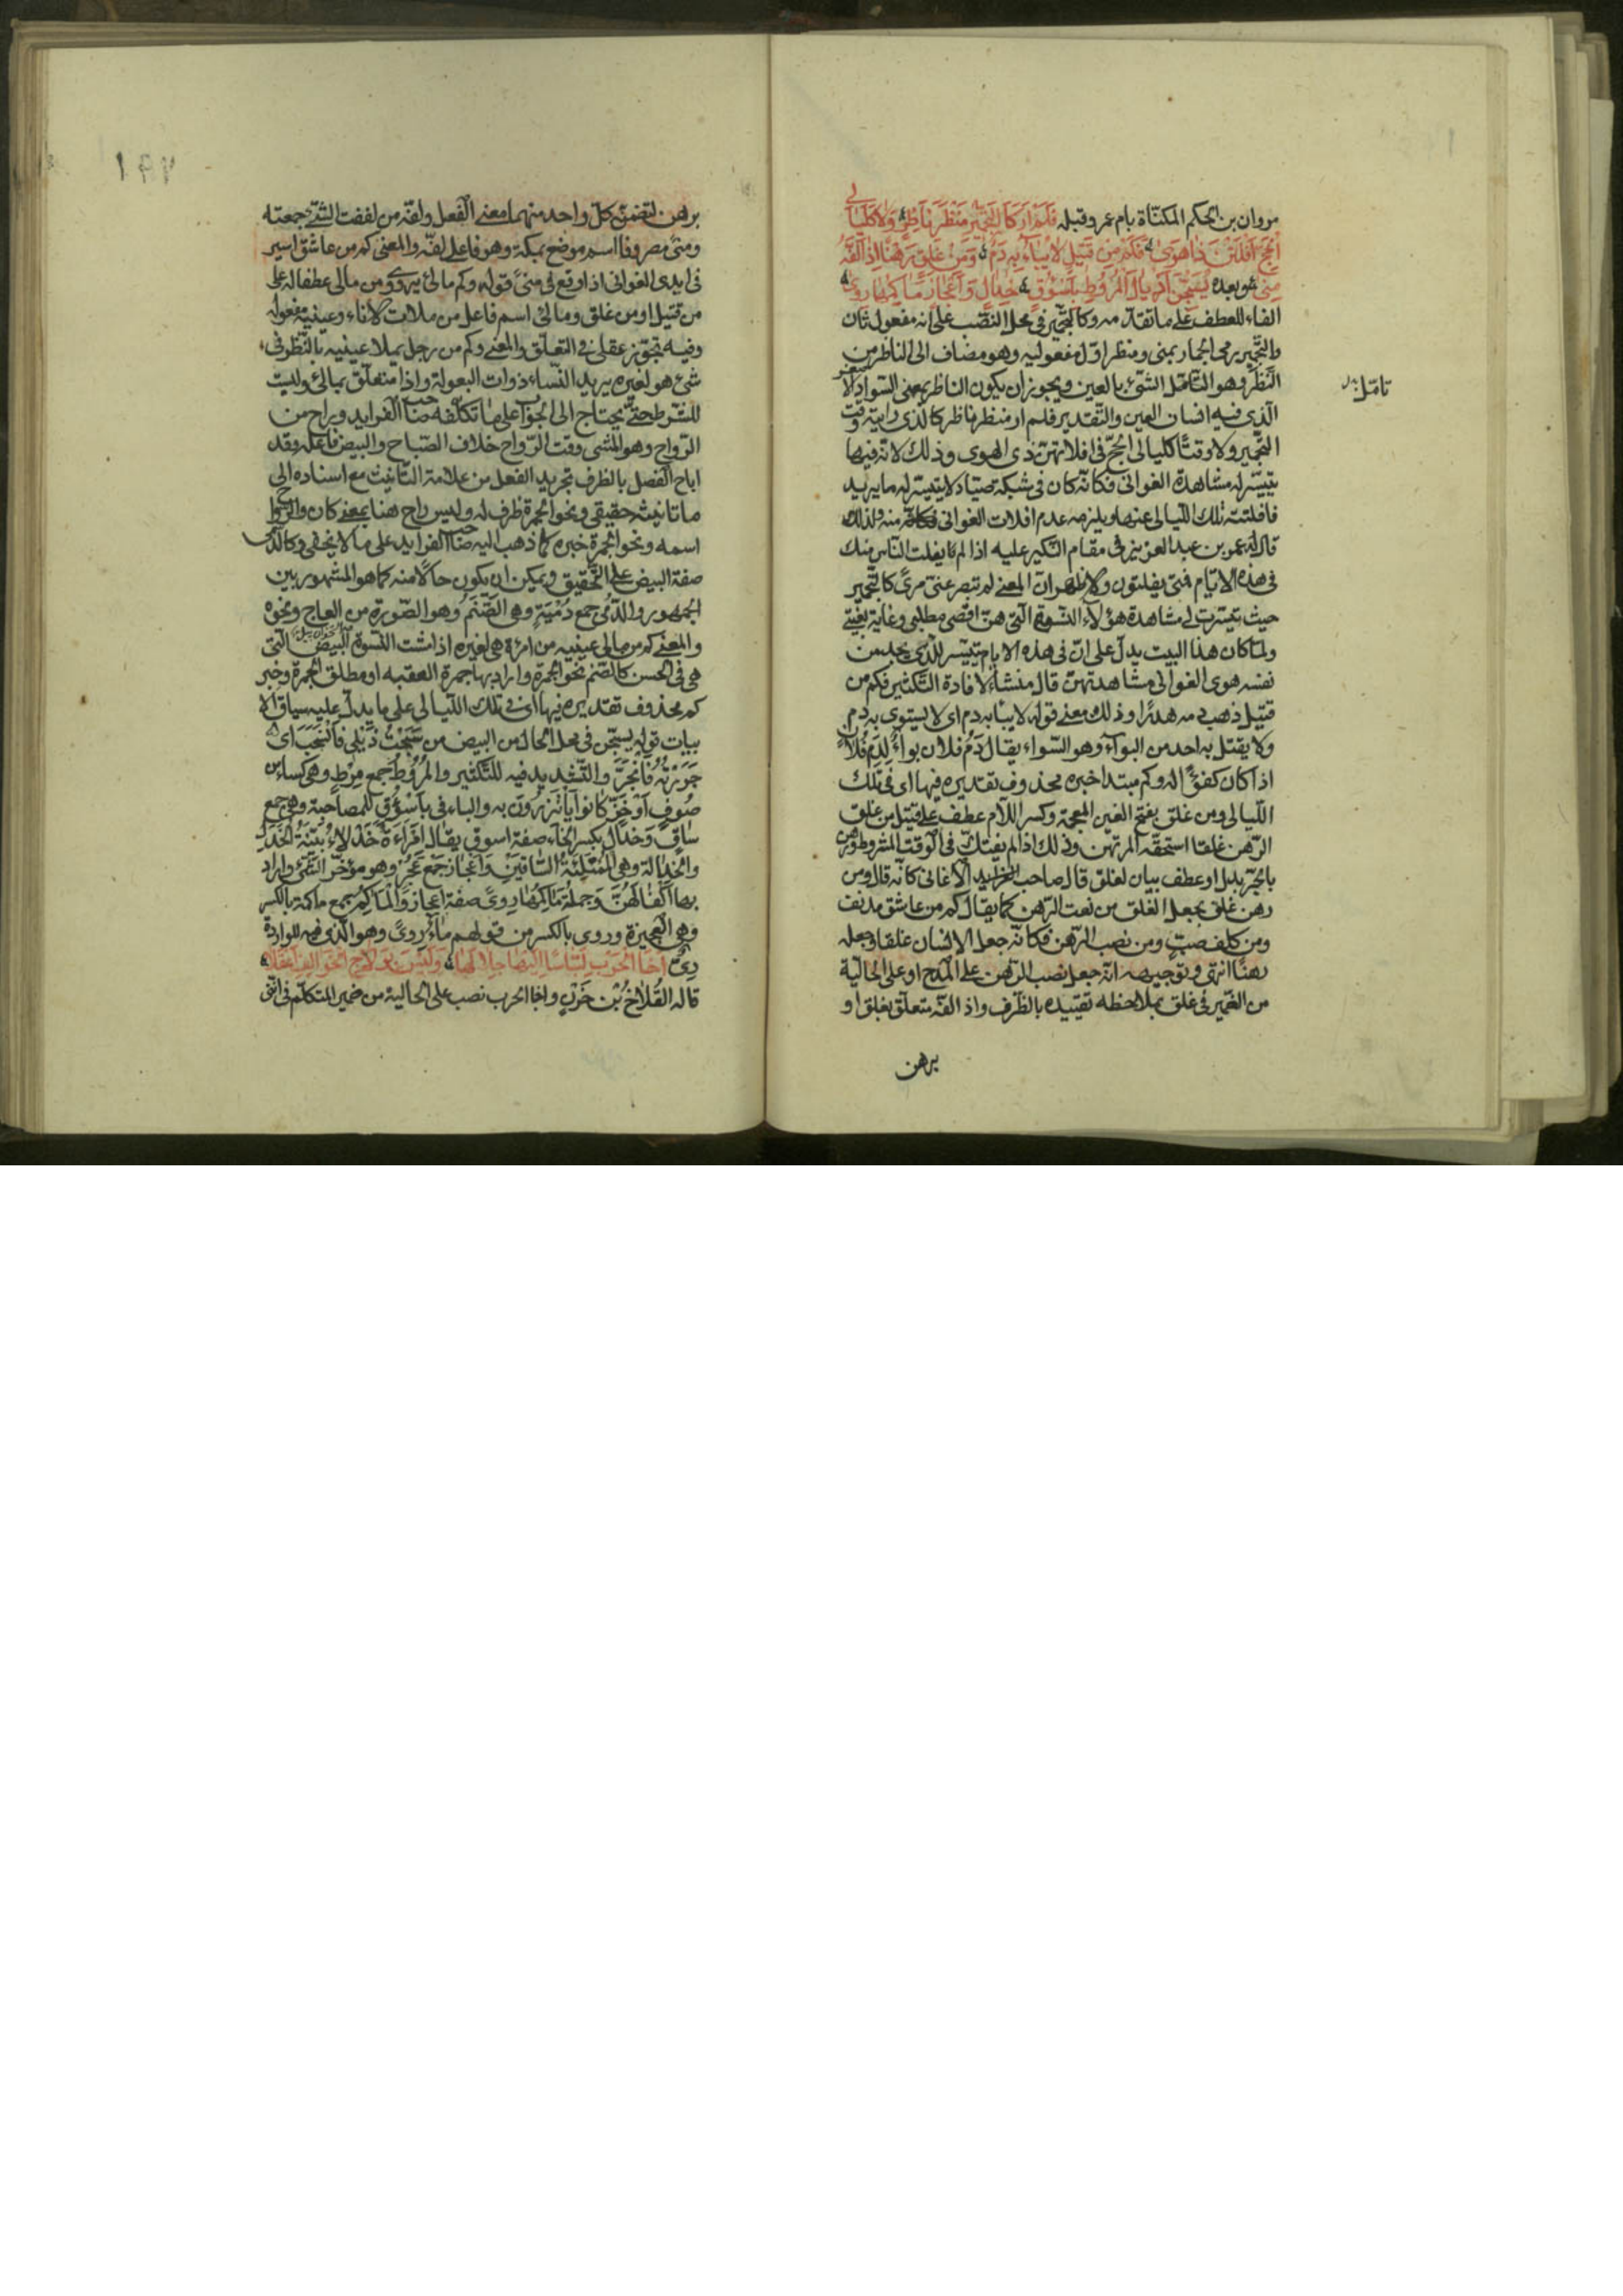 مروان بن الحكم المكنّاة بام عمرو وقبله فَلَمْ اَرَ كَالتَّجْمِيرِ مَنْظَرَ نَاظِرٍ وَلَا كَلَيَالِي
الْحَجِّ اَفْلَتْنَ ذَا هَوَى فَكَمْ مِنْ قَتِيلٍ لَا يُبَاءُ بِهِ دَمٌ وَمِنْ غَلِقٍ رَهْنًا اِذَا لَفَّهُ
مِنَى وبعده يُسَحِّبْنَ اَذْيَالَ الْمُرُوطِ بِأَسْؤُقٍ خِدَالٍ وَاَعْجَازٍ مَآكِمُهَا رِوَى
الفاء للعطف على ما تقدّمه وكالتجمير في محل النصب على انه مفعول ثان
والتجمير رمى الجمار بمنى ومنظر اوّل مفعوليه وهو مضاف الى الناظر من
النظر وهو التأمّل الشئ بالعين ويجوز ان يكون الناظر بمعنى السواد الاصغر
الذى فيه انسان العين والتقدير فلم ار منظر ناظر كالذى رايته وقت
التجمير ولا وقتًا كليالى الحجّ في افلاتهنّ ذى الهوى وذلك لانه فيها
تيسّر له مشاهدة الغوانى فكانّه كان في شبكة صيّاد لا يتيسّر له ما يريد
فافلتته تلك الليالى عنها ويلزمه عدم افلات الغوانى منه ولذلك
قال له عمر بن عبد العزيز في مقام النكير عليه اذا لم يفلت الناس منك
في هذه الايّام فمتى يفلتون والاظهر ان المعنى لم تبصر عينى مرئ كالتجمير
حيث تيسّرت لى مشاهدة هؤلاء النسوة التى هنّ اقصى مطلبى وغاية بغيتى
ولمّا كان هذا البيت يدلّ على انّ في هذه الايام تيسّر للذى يجد من
نفسه هوى الغوانى مشاهدتهنّ قال منشأ لافادة التكثير فكم من
قتيل ذهب دمه هدرًا وذلك معنى قوله لا يباء به دم اى لا يستوى به دم
ولا يقتل به احد من البوآء وهو السّواء يقال دَمُ فلان بواءٌ لِدَمِ فُلانٍ
اذا كان كفوًا له وكم مبتدا خبره محذوف تقديره فيها اى في تلك
الليالى ومن غلق بفتح الغين المعجمة وكسر اللام عطف على قتيل من غلق
الرّهن غلقا استحقّه المرتهن وذلك اذا لم يفتكّ في الوقت المشروط ورهن
بالجرّ بدل او عطف بيان لغلق قال صاحب الاغانى كانّه قال ومن
رهن غلق بجعل الغلق من نعت الرّهن كما يقال كم من عاشق مدنف
ومن كلف صبّ ومن نصب الرّهن فكانّه جعل الانسان غلقا وجعله
رهنًا انتهى وتوجيهه انّه جعل نصب الرّهن على المدح او على الحاليّة
من الضمير في غلق بملاحظه تقييده بالظّرف واذا لفّه متعلّق بغلق او
برهن
تامّل
برهن لتضمّن كلّ واحد منهما معنى الفعل ولفّه من لففت الشئ جمعته
ومنى مصروفا اسم موضع بمكة وهو فاعل لفّه والمعنى كم من عاشق اسير
في ايدى الغوانى اذا وقع في منىً قوله وكم مالئ يروى ومن مالئ عطفا له على
من قتيل او من غلق ومالئ اسم فاعل من ملأت الاناء وعينيه مفعوله
وفيه تجوّز عقلى في التعلّق والمعنى وكم من رجل يملأ عينيه بالنّظر في
شئ هو لغيره يريد النّساء ذوات البعولة واذا متعلّق بمالئ وليست
للشرط حتّى يحتاج الى الجواب على ما تكلّفه صاحب الفرايد وراح من
الرّواح وهو المشى وقت الرّواح خلاف الصّباح والبيض فاعله وقد
اباح الفصل بالظرف تجريد الفعل من علامة التأنيث مع اسناده الى
ما تانيثه حقيقى ونحو الجمرة ظرف له وليس راح هنا بمعنى كان
اسمه ونحو الجمرة خبره كما ذهب اليه صاحب الفرايد على ما لا يخفى وكالدّمى
صفة البيض على التحقيق ويمكن ان يكون حالًا منه كما هو المشهور بين
الجمهور والدُّمى جمع دُمْيَةٍ وهى الصَّنَمُ وهو الصّورة من العاج ونحوه
والمعنى كم من مالئ عينيه من امرأة هى لغيره اذا مشت النسوة البيض التى
هى في الحسن كالصّنم نحو الجمرة واراد بها جمرة العقبه او مطلق الجمرة وخبر
كم محذوف تقديره فيها اى في تلك الليالى على ما يدلّ عليه سياق الا
بيات قوله يسحّبن في محل الحال من البيض من سَحَبْتُ ذَيْلِى فَانْسَحَبَ اى
جَرَرْتُهُ فَانْجَرَّ والتّشديد فيه للتّكثير والمُرُوطُ جمع مِرْطٍ وهى كساء من
صُوفٍ اَوْ خَزٍّ كانوا يأتزرون به والباء في بأسْؤُقٍ للمصاحبة وهى جمع
سَاقٍ وَخدال بكسر الخاء صفة اسوق يقال امْرَاَةٌ خَدْلاءُ بَيِّنَةُ الْخَدَلِ
والخدالة وهى المُمْتَلِئَةُ السّاقَيْنِ وَاَعْجَاز جَمْع عَجُز وهو مؤخّر الشّئ واراد
بها اكْفالَهُنَّ وَجملة مَآكِمُهَا رِوىً صفة اعجاز وَالْمَآكِمُ جمع مأكمة بالكسر
وهى العجيزة وروى بالكسر من قولهم ماءٌ رِوىً وهو الذى فيه للواردة
رِىٌّ اَخَا الْحَرْبِ لَبَّاسًا اِلَيْهَا جِلَالَهَا وَلَيْسَ بِوَلَّاجِ الْخَوَالِفِ اَعْقَلَا
قاله القُلَاخُ بْن حَزْنٍ واخا الحرب نصب على الحالية من ضمير المتكلّم في انّنى